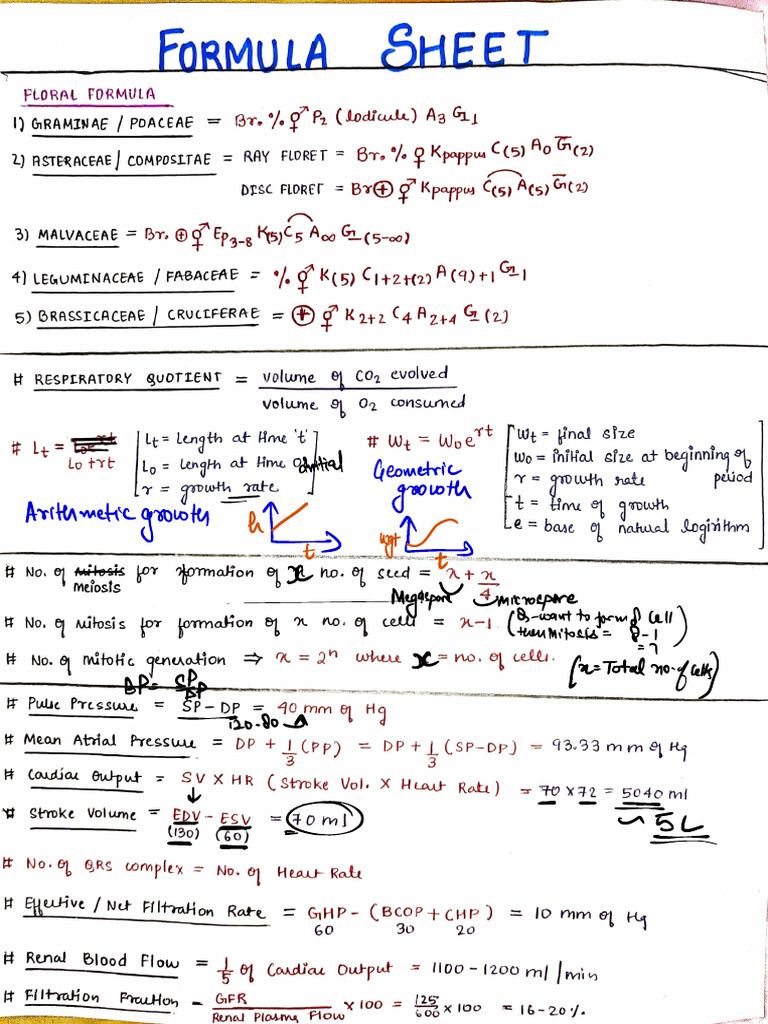 FORMULA SHEET
FLORAL FORMULA
1) GRAMINAE / POACEAE = Br. % ⚥ P2 (lodicule) A3 G1
2) ASTERACEAE / COMPOSITAE = RAY FLORET = Br. % ♀ Kpappus C(5) A0 G̅(2)
DISC FLORET = Br ⊕ ⚥ Kpappus C(5) A(5) G̅(2)
3) MALVACEAE = Br. ⊕ ⚥ Ep3-8 K(5) C5 A∞ G(5-∞)
4) LEGUMINACEAE / FABACEAE = % ⚥ K(5) C1+2+(2) A(9)+1 G1
5) BRASSICACEAE / CRUCIFERAE = ⊕ ⚥ K2+2 C4 A2+4 G(2)
# RESPIRATORY QUOTIENT = volume of CO2 evolved
volume of O2 consumed
# Lt = L0 + rt
[Lt = length at time 't'
L0 = length at time 0 initial
r = growth rate]
Arithmetic growth
h
t
# Wt = W0 e^rt
Geometric growth
wgt
t
[Wt = final size
W0 = initial size at beginning of period
r = growth rate
t = time of growth
e = base of natural logirithm]
# No. of mitosis meiosis for formation of x no. of seed = x + x/4
Megaspore microspore
# No. of mitosis for formation of x no. of cells = x-1 (8-want to form 8 cell
then Mitosis = 8-1
= 7)
# No. of mitotic generation ⇒ x = 2^n where x = no. of cells. (x = Total no. of cells)
BP = SP/DP
# Pulse Pressure = SP - DP = 40 mm of Hg
120-80
# Mean Atrial Pressure = DP + 1/3 (PP) = DP + 1/3 (SP-DP) = 93.33 mm of Hg
# Cardiac Output = SV X HR (Stroke Vol. X Heart Rate) = 70 x 72 = 5040 ml
≃ 5L
# Stroke Volume = EDV - ESV = 70 ml
(130) (60)
# No. of QRS complex = No. of Heart Rate
# Effective / Net Filtration Rate = GHP - (BCOP + CHP) = 10 mm of Hg
60 30 20
# Renal Blood Flow = 1/5 of Cardiac Output = 1100 - 1200 ml / min
# Filtration Fraction = GFR / Renal Plasma Flow x 100 = 125/600 x 100 = 16-20%